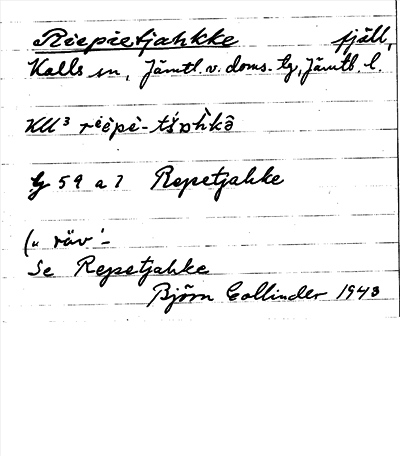 Riepietjahkke fjäll,
Kalls sn, Jämtl. v. doms. lg, Jämtl. l.
KU³ rièpè-tšɒh̀kə̂
G 59 a 7 Repetjahke
(„ räv‘—
Se Repetjahke
Björn Collinder 1943